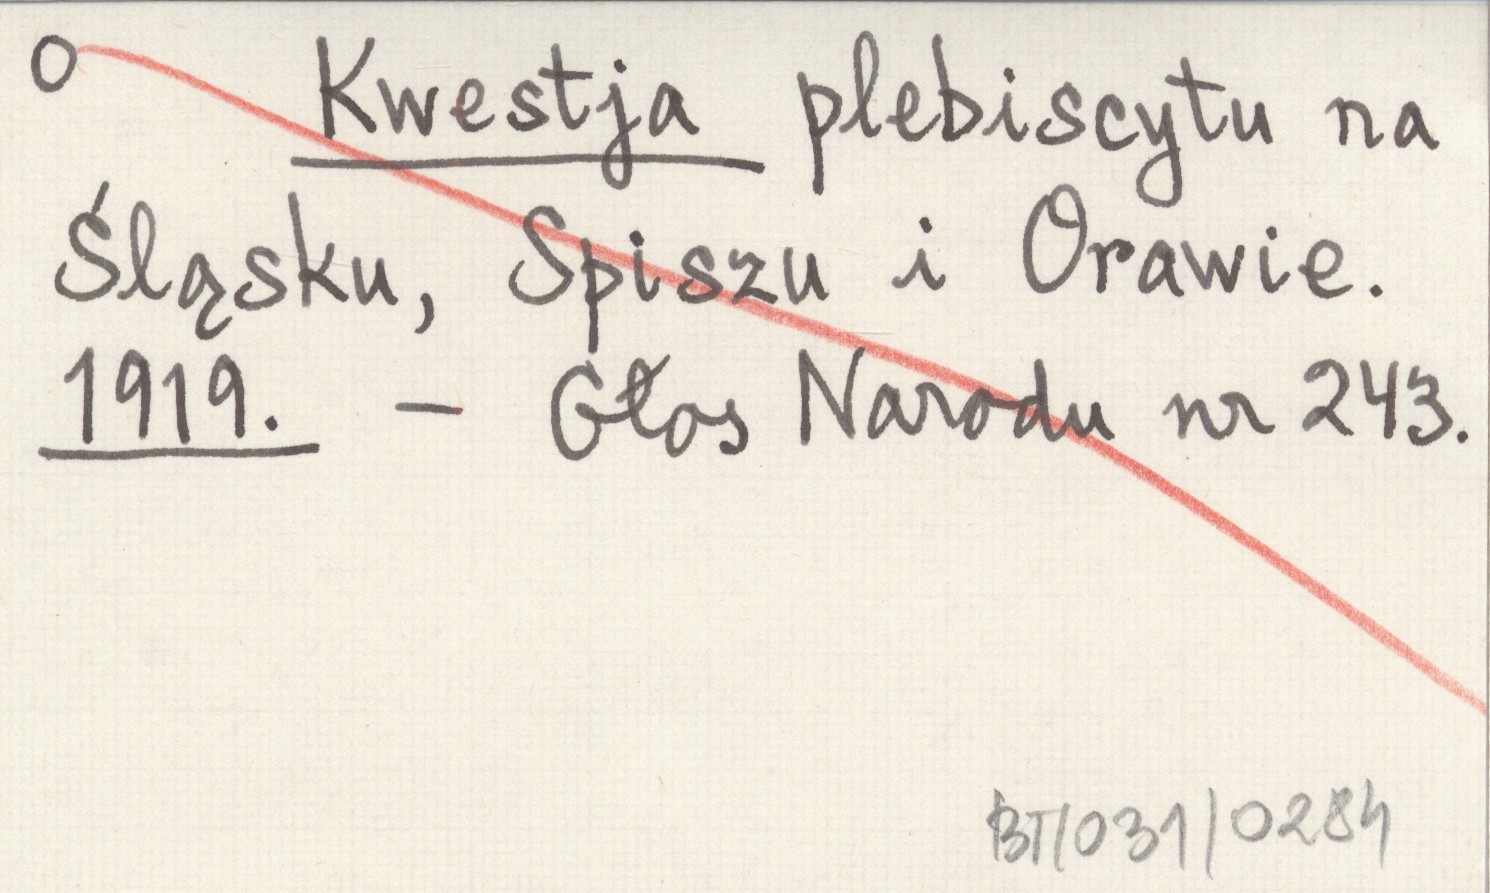 O Kwestja plebiscytu na
Śląsku, Spiszu i Orawie.
1919. – Głos Narodu nr 243.
BT/031/0284